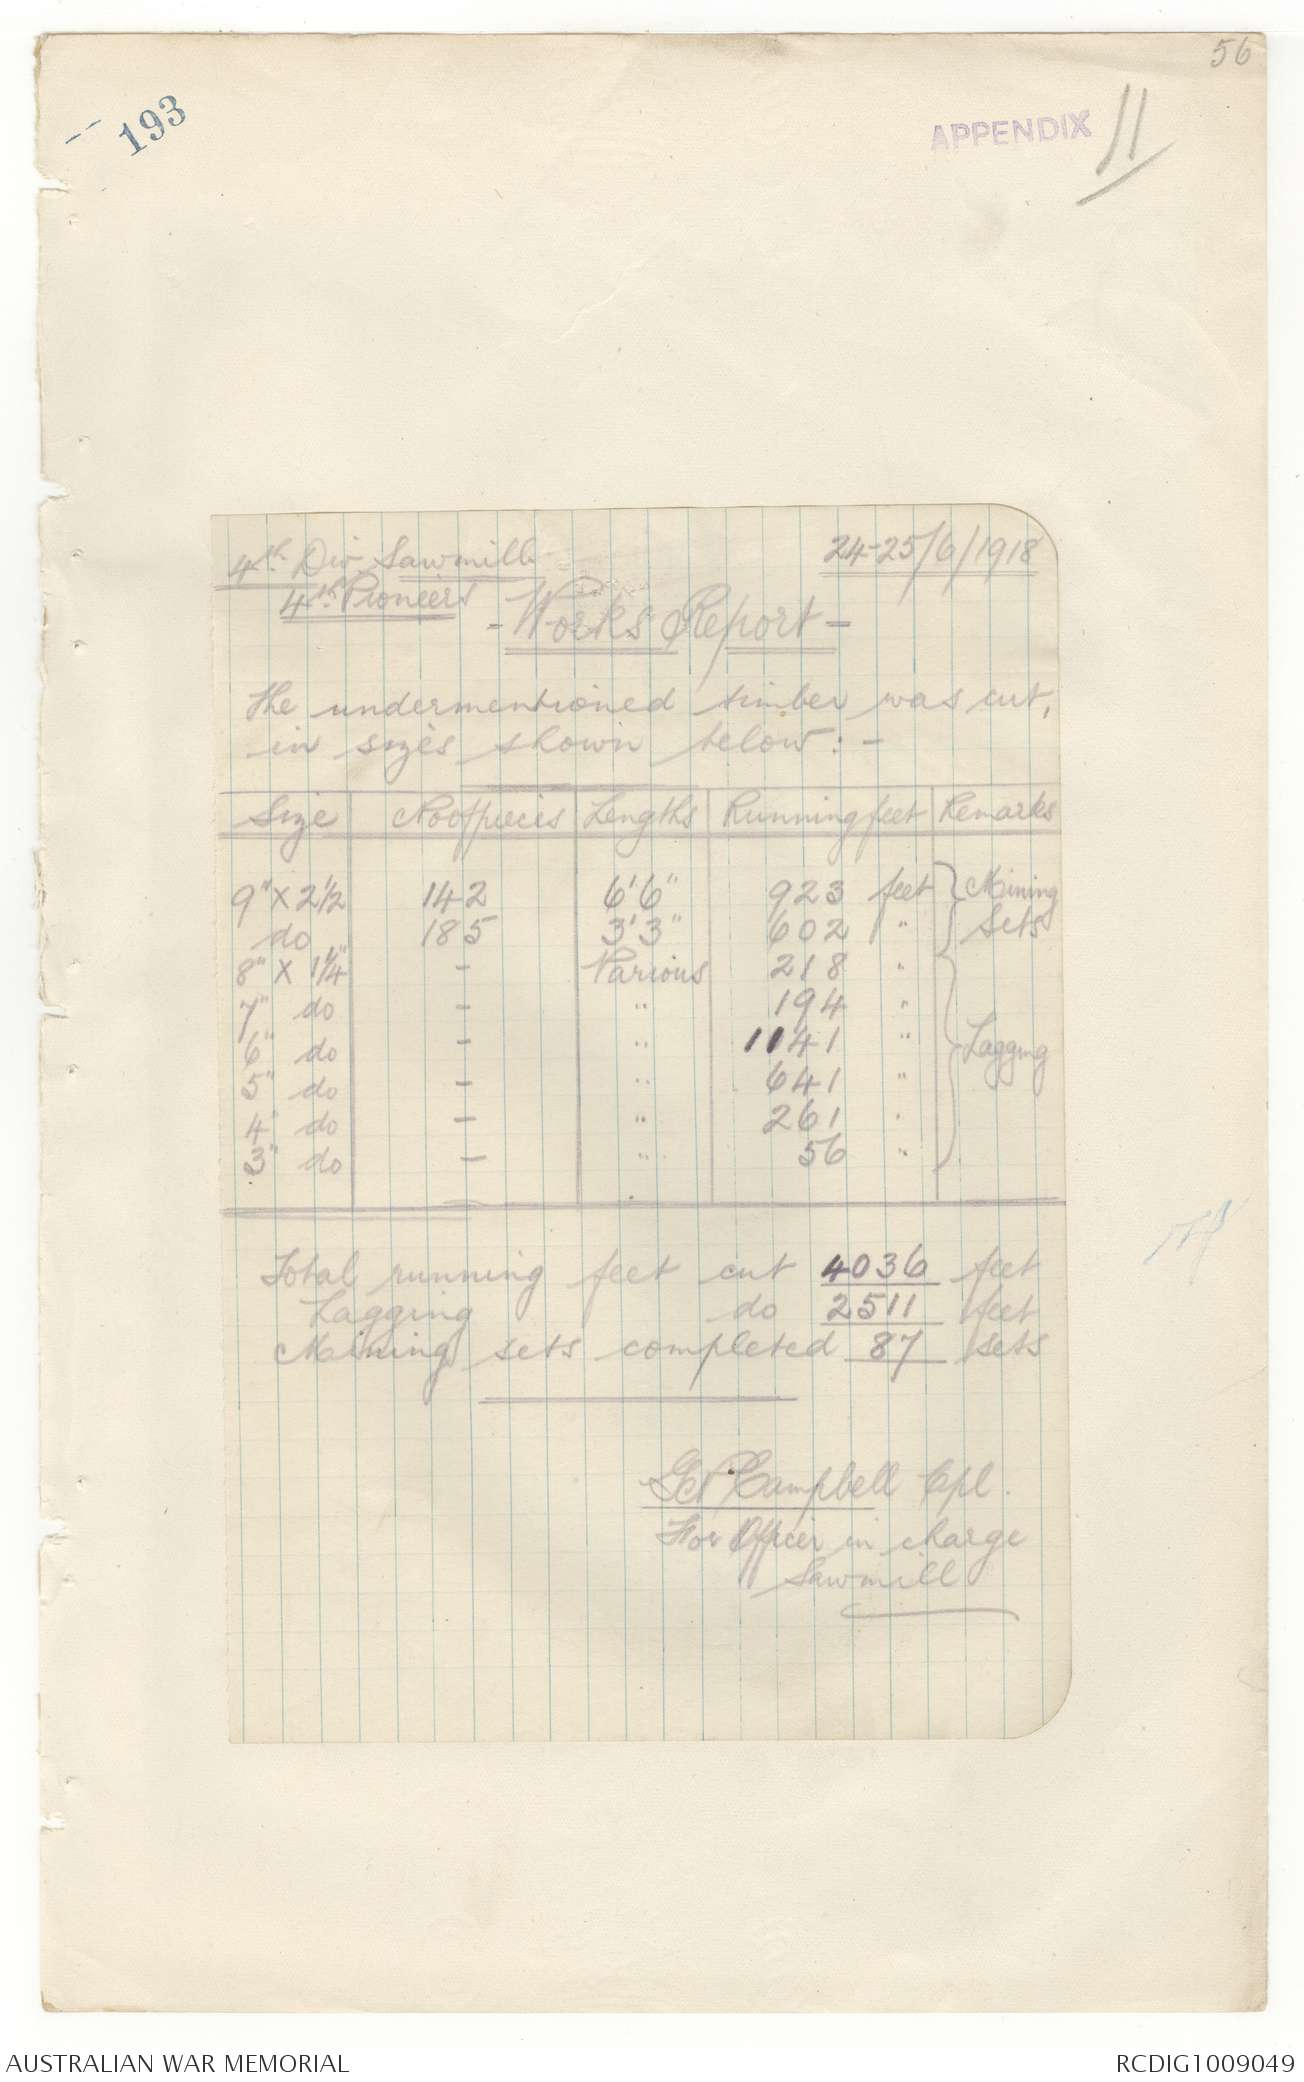 56
193
APPENDIX 11
4th Div. Sawmill 24-25/6/1918
4th Pioneers
- Works Report -
The undermentioned timber was cut,
in sizes shown below: -
Size No of pieces Lengths Running feet Remarks
9" X 2½ 142 6'6" 923 feet Mining
do 185 3'3" 602 " Sets
8" X 1¼" - Various 218 "
7" do - " 194 "
6" do - " 1141 "
5" do - " 641 " Lagging
4" do - " 261 "
3" do - " 56 "
Total running feet cut 4036 feet
Lagging do 2511 feet
Mining sets completed 87 sets
Campbell Cpl.
For Officer in charge
Sawmill
AUSTRALIAN WAR MEMORIAL RCDIG1009049